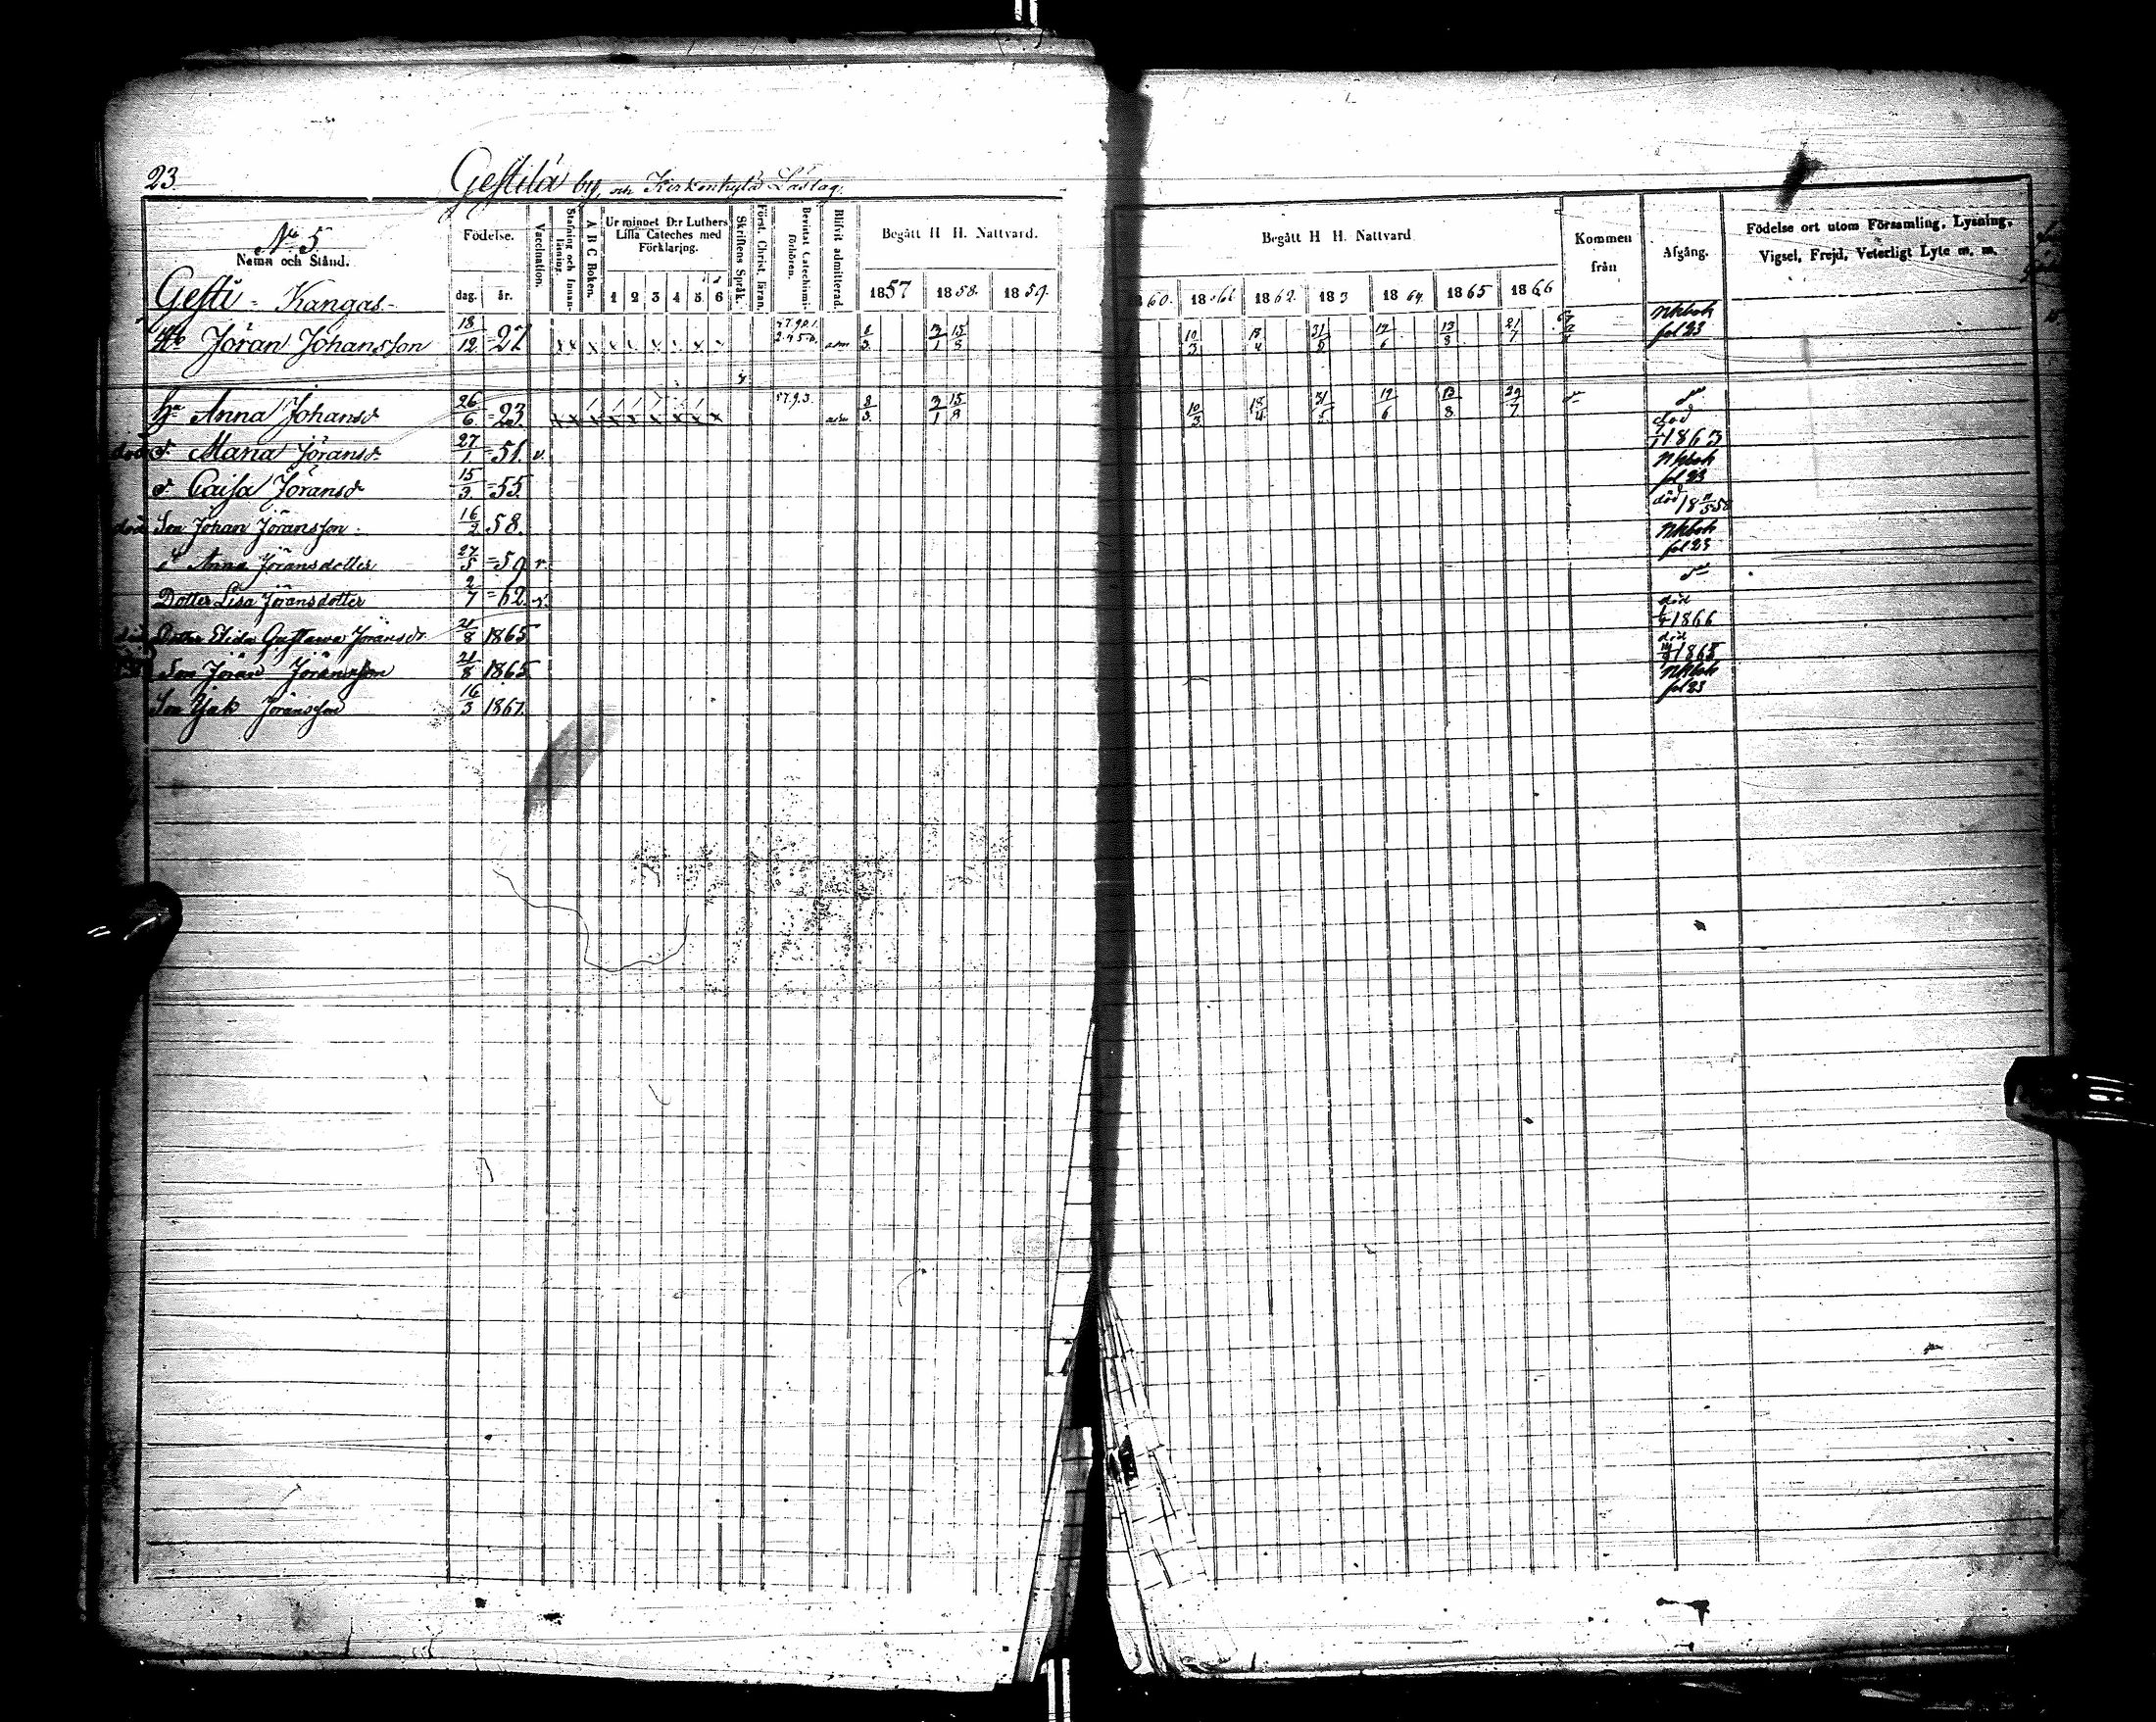 23
Gestilä by, och Kirkonkylä Läslag.
No 5
Namn och Stånd.
Födelse.
dag. år.
Vaccination.
Stafning och Innan-läsning.
A B C Boken.
Ur minnet D:r Luthers Lilla Cateches med Förklaring.
1 2 3 4 5 6
Skriftens Språk.
Först. Christ. läran.
Bevistat Catechismi förhören.
Blifvit admitterad.
Begått H H. Nattvard.
1857 1858. 1859.
Begått H H. Nattvard
60. 1861 1862. 183 1864. 1865 1866
Kommen från
Afgång.
Födelse ort utom Församling, Lysning, Vigsel, Frejd, Veterligt Lyte m. m.
Gesti = Kangas
Jöran Johansson 18/12 =27 adm 8/3. 3/1 15/8 10/3 18/4 31/5 12/6 13/8 21/7 Nkbok fol 23
Hu Anna Johansd 26/6 =23. 57.9.3. adm 8/3. 3/1 15/8 10/3 18/4 31/5 12/6 13/8 29/7
död d Maria Jöransd. 27/1 =51. v. död 1863
d Caisa Jöransd 15/3 =55. Nkbok fol 23
död Son Johan Jöransson 16/2 58. död 1858
d Anna Jöransdotter 27/5 =59 v. Nkbok fol 23
Dotter Lisa Jöransdotter 2/7 =62. v.
Dotter Elida Gustava Jöransdr 21/8 1865 död 1866
Son Jöran Jöransson 21/8 1865 död 1865
Son Isak Jöransson 16/3 1867. Nkbok fol 23